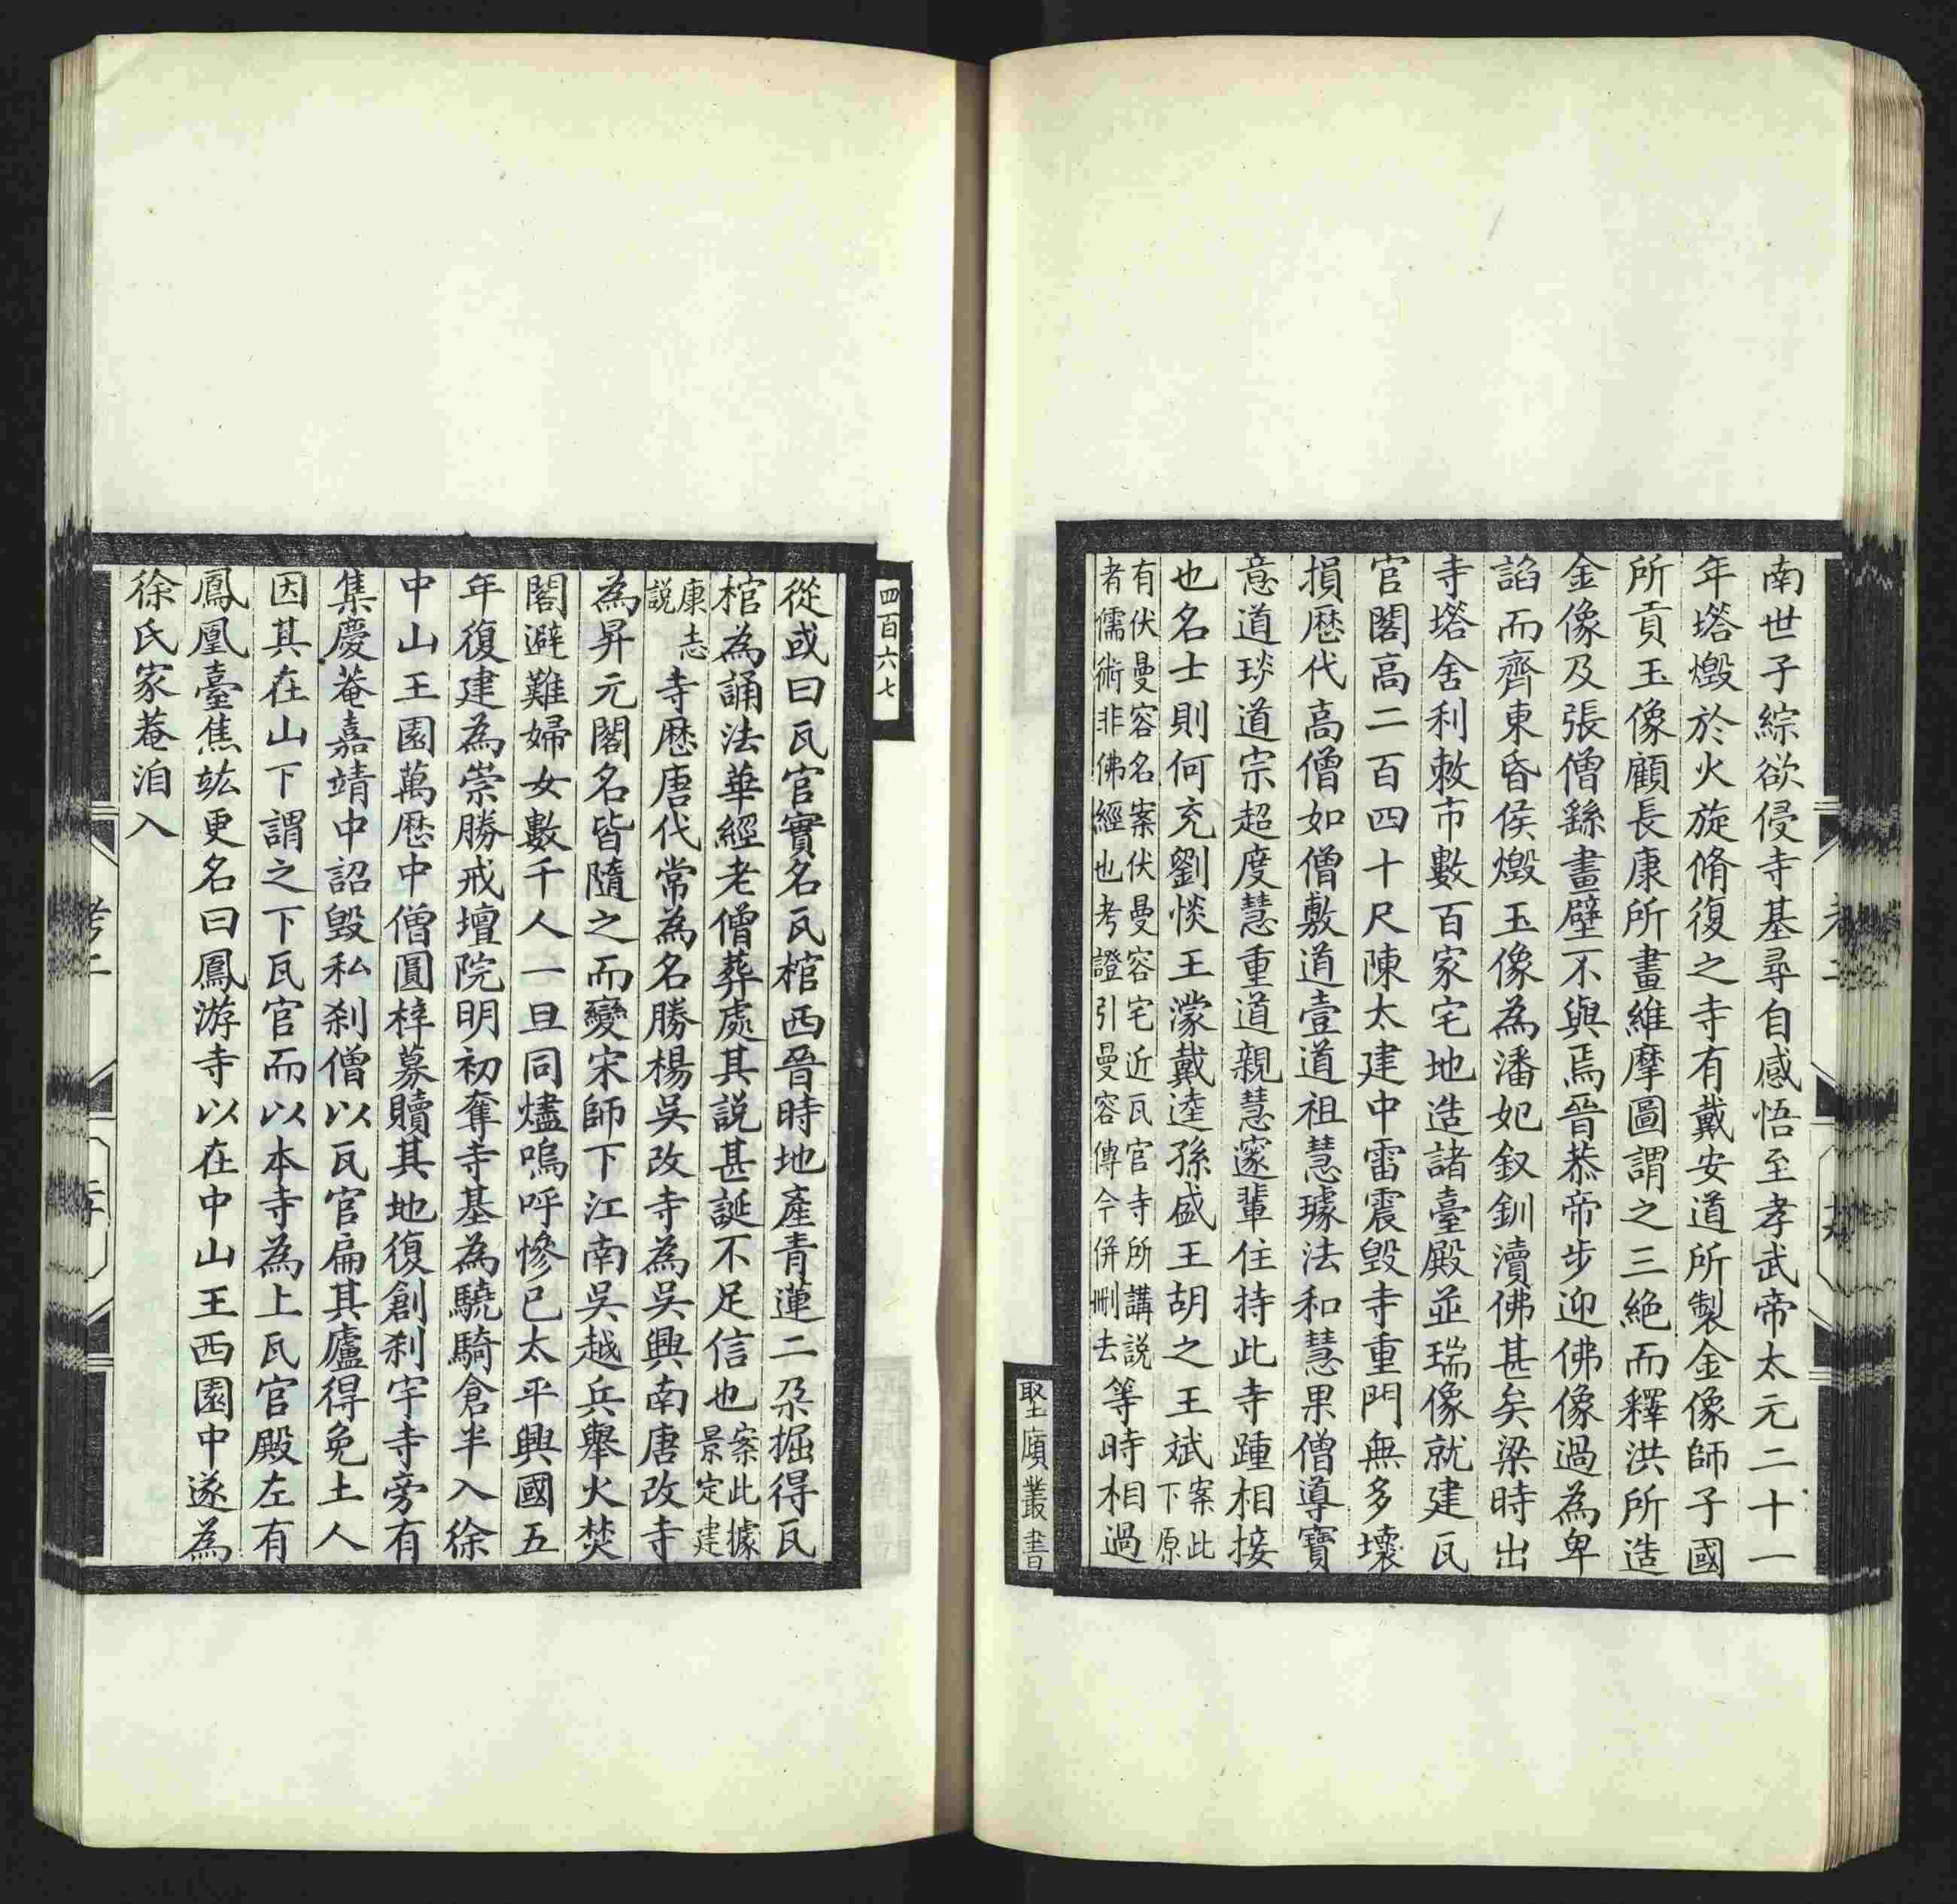 南世子綜欲侵寺基尋自感悟至孝武帝太元二十一
年塔燬於火旋脩復之寺有戴安道所製金像師子國
所貢玉像顧長康所畫維摩圖謂之三絕而釋洪所造
金像及張僧繇畫壁不與焉晉恭帝步迎佛像過為卑
諂而齊東昏侯燬玉像為潘妃釵釧瀆佛甚矣梁時出
寺塔舍利敕市數百家宅地造諸臺殿並瑞像就建瓦
官閣高二百四十尺陳太建中雷震毀寺重門無多壞
損歷代高僧如僧敷道壹道祖慧璩法和慧果僧導寶
意道琰道宗超度慧重道親慧邃輩住持此寺踵相接
也名士則何充劉惔王濛戴逵孫盛王胡之王斌案此下原
有伏曼容名案伏曼容宅近瓦官寺所講說
者儒術非佛經也考證引曼容傳今併刪去等時相過
堅瓠叢書
四百六七
從或曰瓦官實名瓦棺西晉時地產青蓮二朶掘得瓦
棺為誦法華經老僧葬處其說甚誕不足信也案此據景定建
康志說寺歷唐代常為名勝楊吳改寺為吳興南唐改寺
為昇元閣名皆隨之而變宋師下江南吳越兵舉火焚
閣避難婦女數千人一旦同燼嗚呼慘已太平興國五
年復建為崇勝戒壇院明初奪寺基為驍騎倉半入徐
中山王園萬歷中僧圓梓募贖其地復創剎宇寺旁有
集慶菴嘉靖中詔毀私剎僧以瓦官扁其廬得免土人
因其在山下謂之下瓦官而以本寺為上瓦官殿左有
鳳凰臺焦竑更名曰鳳游寺以在中山王西園中遂為
徐氏家菴洎入